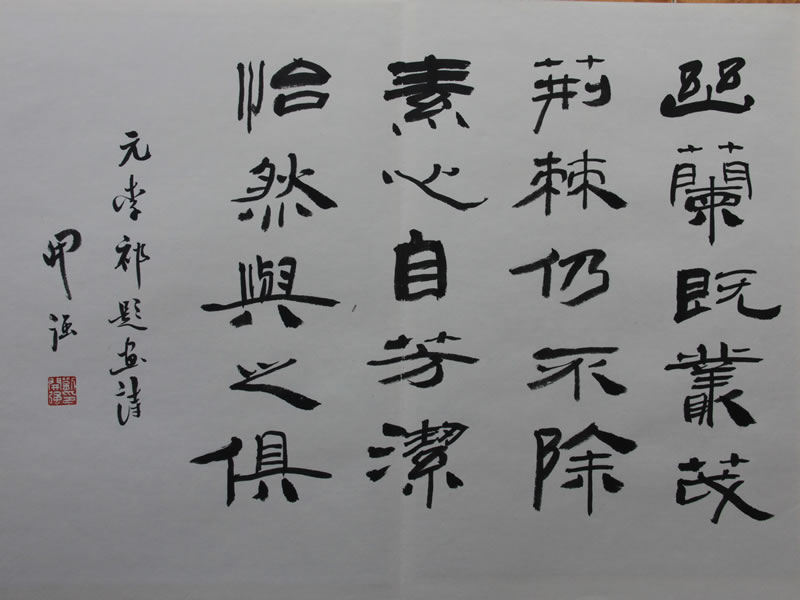 幽蘭既叢茂
荊棘仍不除
素心自芳潔
怡然與之俱
元李祁題画诗